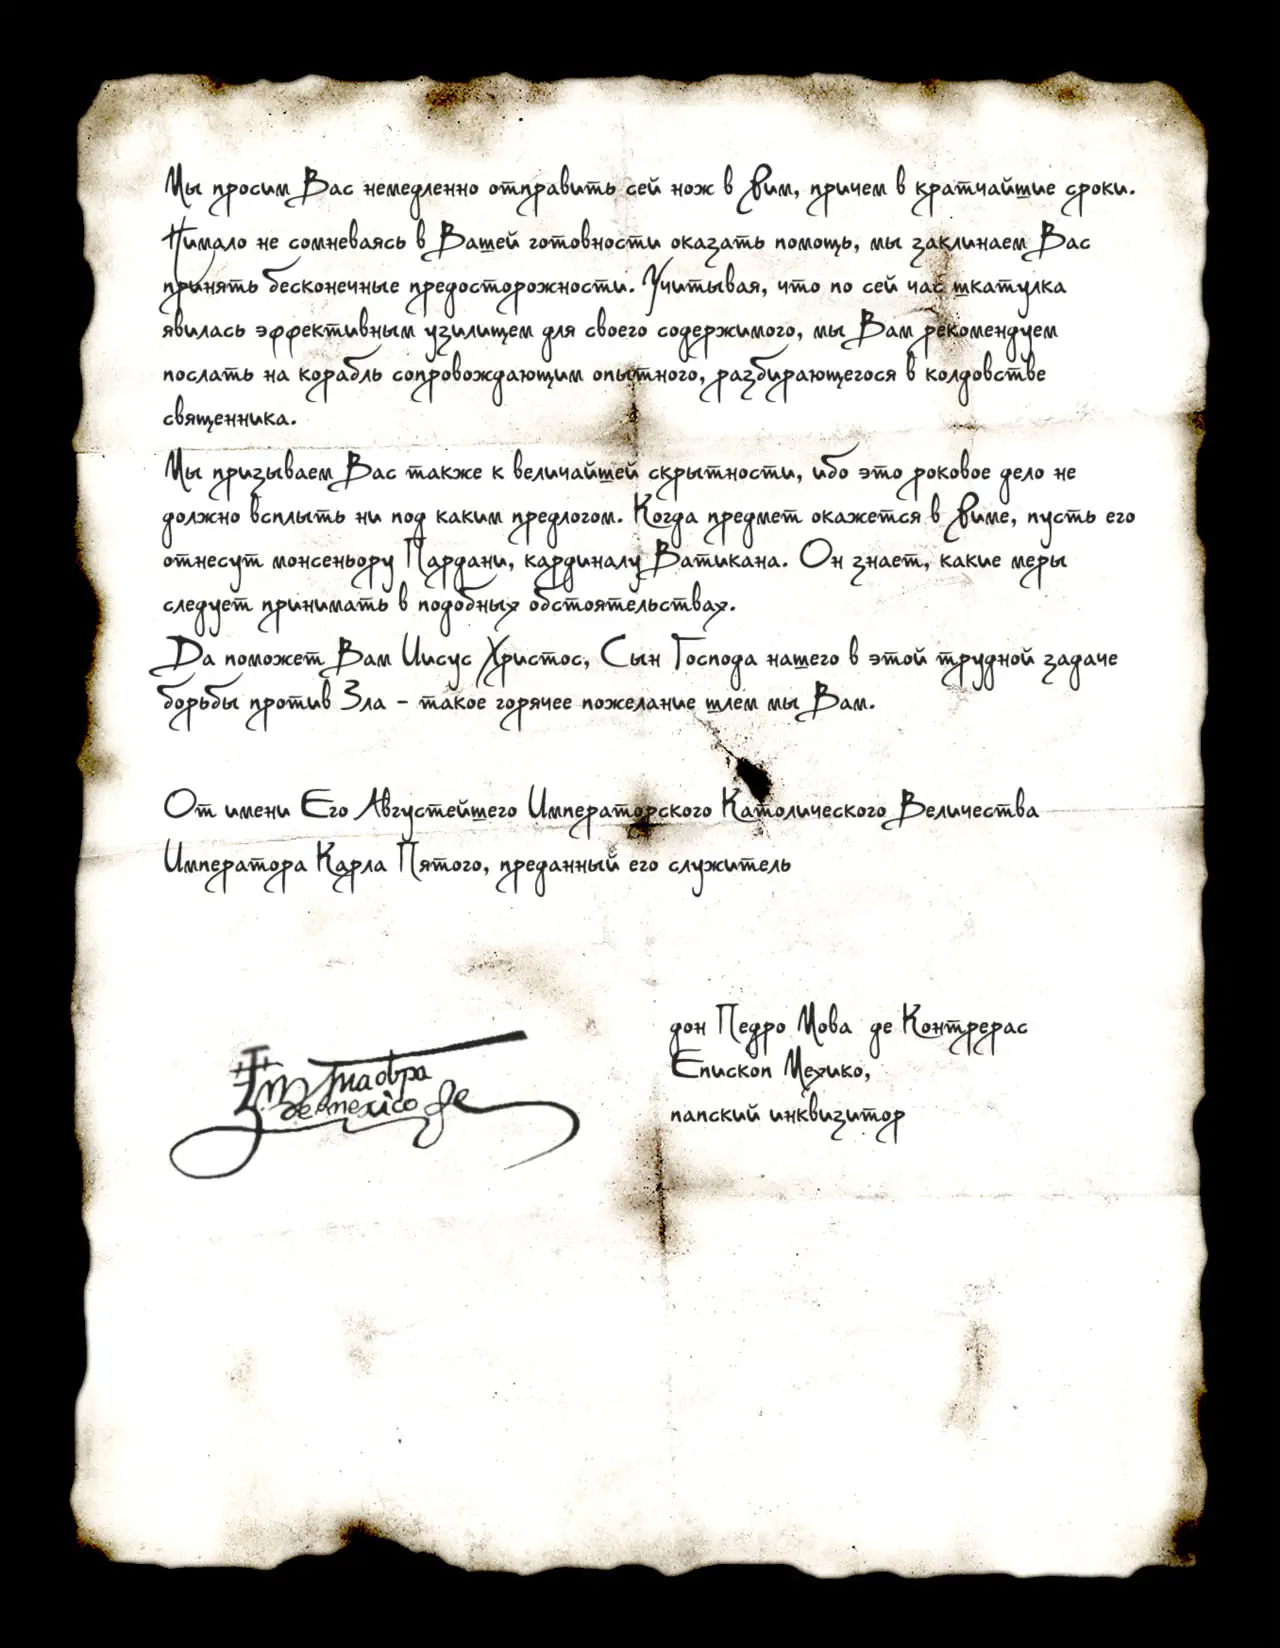 Мы просим Вас немедленно отправить сей нож в Рим, причем в кратчайшие сроки.
Нимало не сомневаясь в Вашей готовности оказать помощь, мы заклинаем Вас
принять бесконечные предосторожности. Учитывая, что по сей час шкатулка
явилась эффективным узилищем для своего содержимого, мы Вам рекомендуем
послать на корабль сопровождающим опытного, разбирающегося в колдовстве
священника.
Мы призываем Вас также к величайшей скрытности, ибо это роковое дело не
должно всплыть ни под каким предлогом. Когда предмет окажется в Риме, пусть его
отнесут монсеньору Пардани, кардиналу Ватикана. Он знает, какие меры
следует принимать в подобных обстоятельствах.
Да поможет Вам Иисус Христос, Сын Господа нашего в этой трудной задаче
борьбы против Зла - такое горячее пожелание шлем мы Вам.
От имени Его Августейшего Императорского Католического Величества
Императора Карла Пятого, преданный его служитель
дон Педро Мова де Контрерас
Епископ Мехико,
папский инквизитор
de mexico